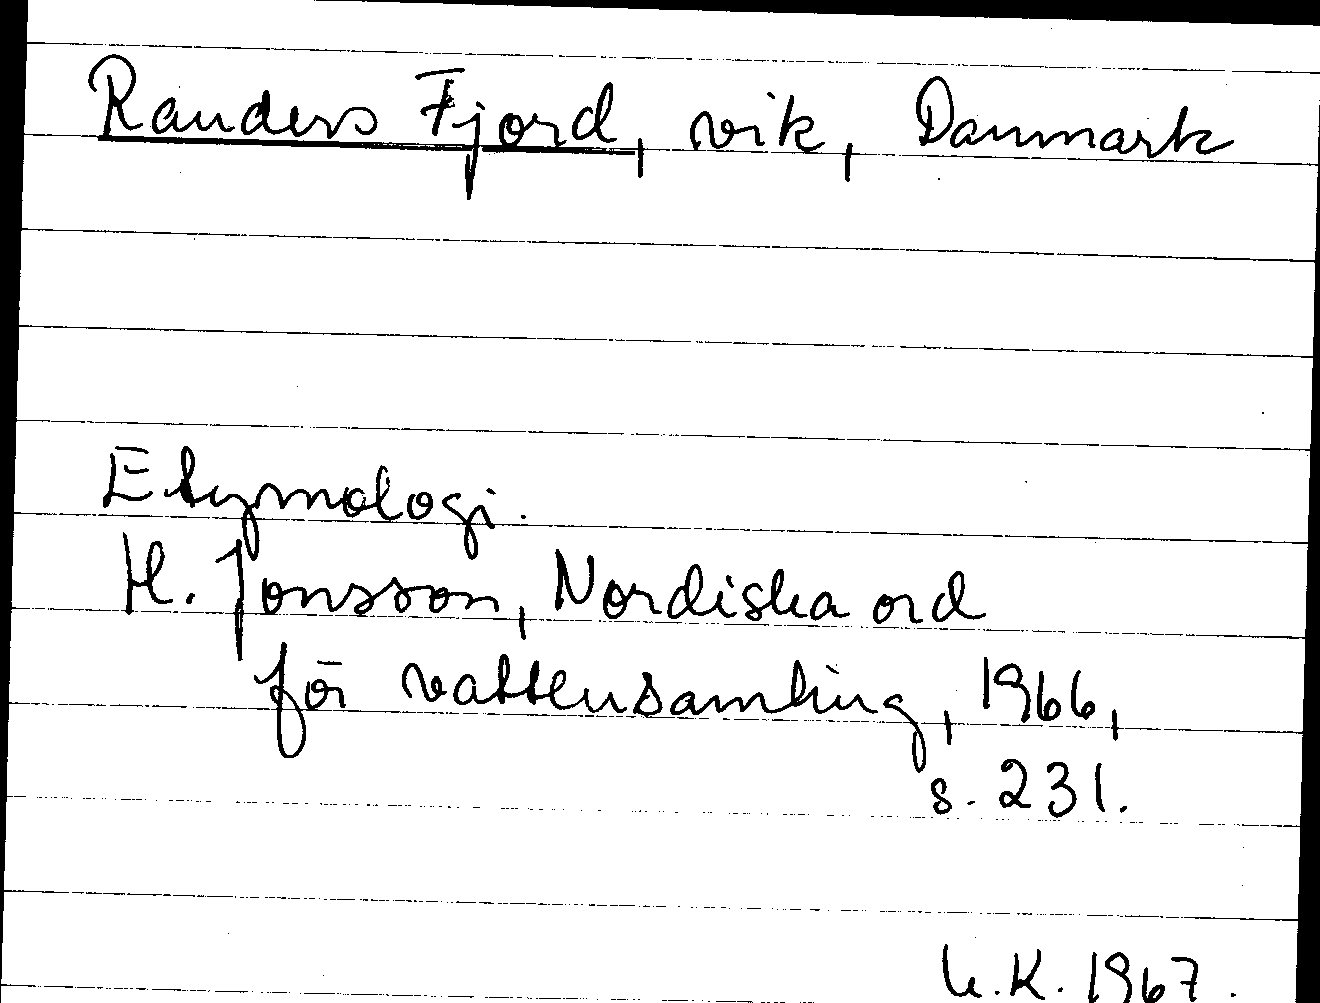 Randers Fjord, vik, Danmark
Etymologi.
H. Jonsson, Nordiska ord
för vattensamling, 1966,
s. 231.
K. 1967.